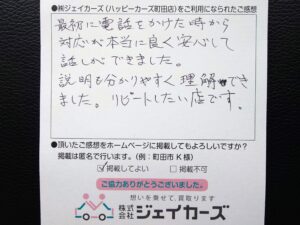 ●㈱ジェイカーズ(ハッピーカーズ町田店)をご利用になられたご感想
最初に電話をかけた時から
対応が本当に良く安心して
話しができました。
説明も分かりやすく理解できました。
リピートしたい店です。
●頂いたご感想をホームページに掲載してもよろしいですか?
掲載は匿名で行います。(例:町田市K様)
☑掲載してよい □掲載不可
ご協力ありがとうございました。
想いを乗せて、買取り。
株式会社 ジェイカーズ